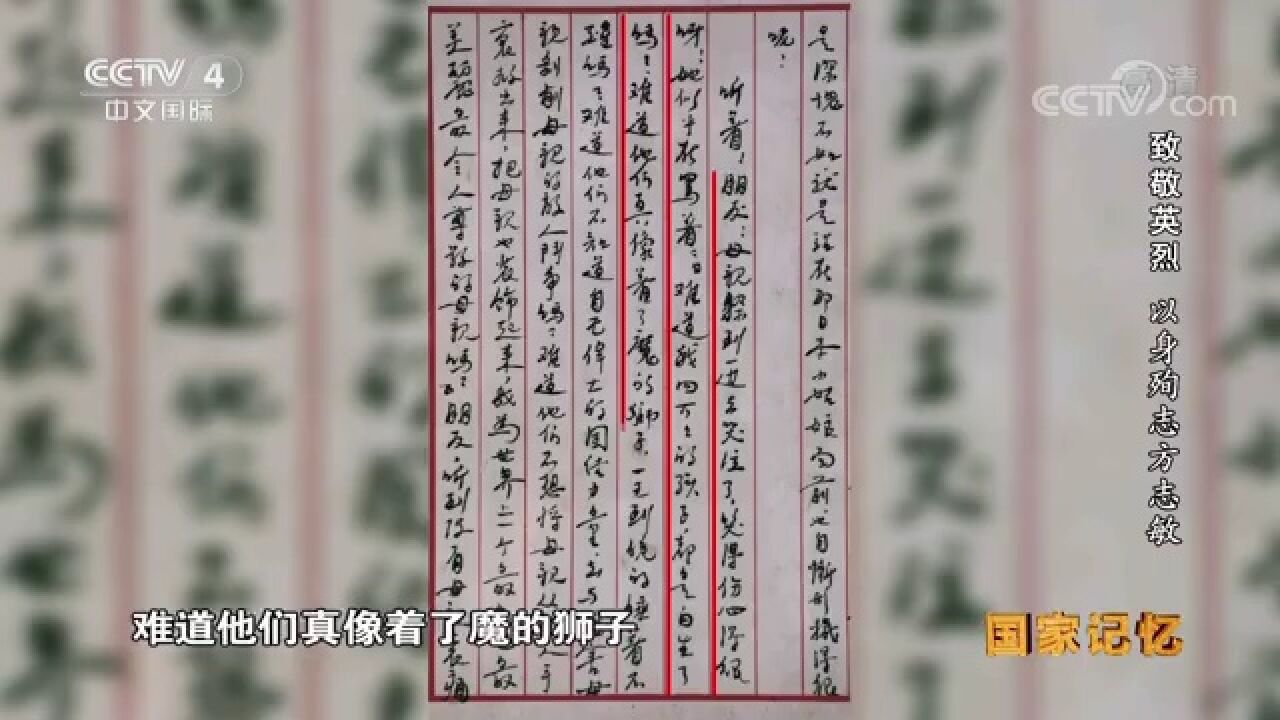 CCTV 4
中文国际
高清
CCTV com
致敬英烈 以身殉志方志敏
是深愧不如就是站在那日本小姑娘面前,也自惭形秽得很
呢!
听着!朋友!母亲躲到一边去哭泣了,哭得伤心得很
呀!她似乎在骂着:“难道我四万万的孩子,都是白生了
吗?难道他们真像着了魔的狮子,一天到晚的睡着不
醒吗?难道他们不知道自己伟大的团结力量,去与害母
亲剥削母亲的敌人斗争吗?难道他们不想将母亲从人手
里救出来,把母亲也装饰起来,成为世界上一个最
美丽最令人尊敬的母亲吗?”朋友,听到没有母哀痛
难道他们真像着了魔的狮子
国家记忆